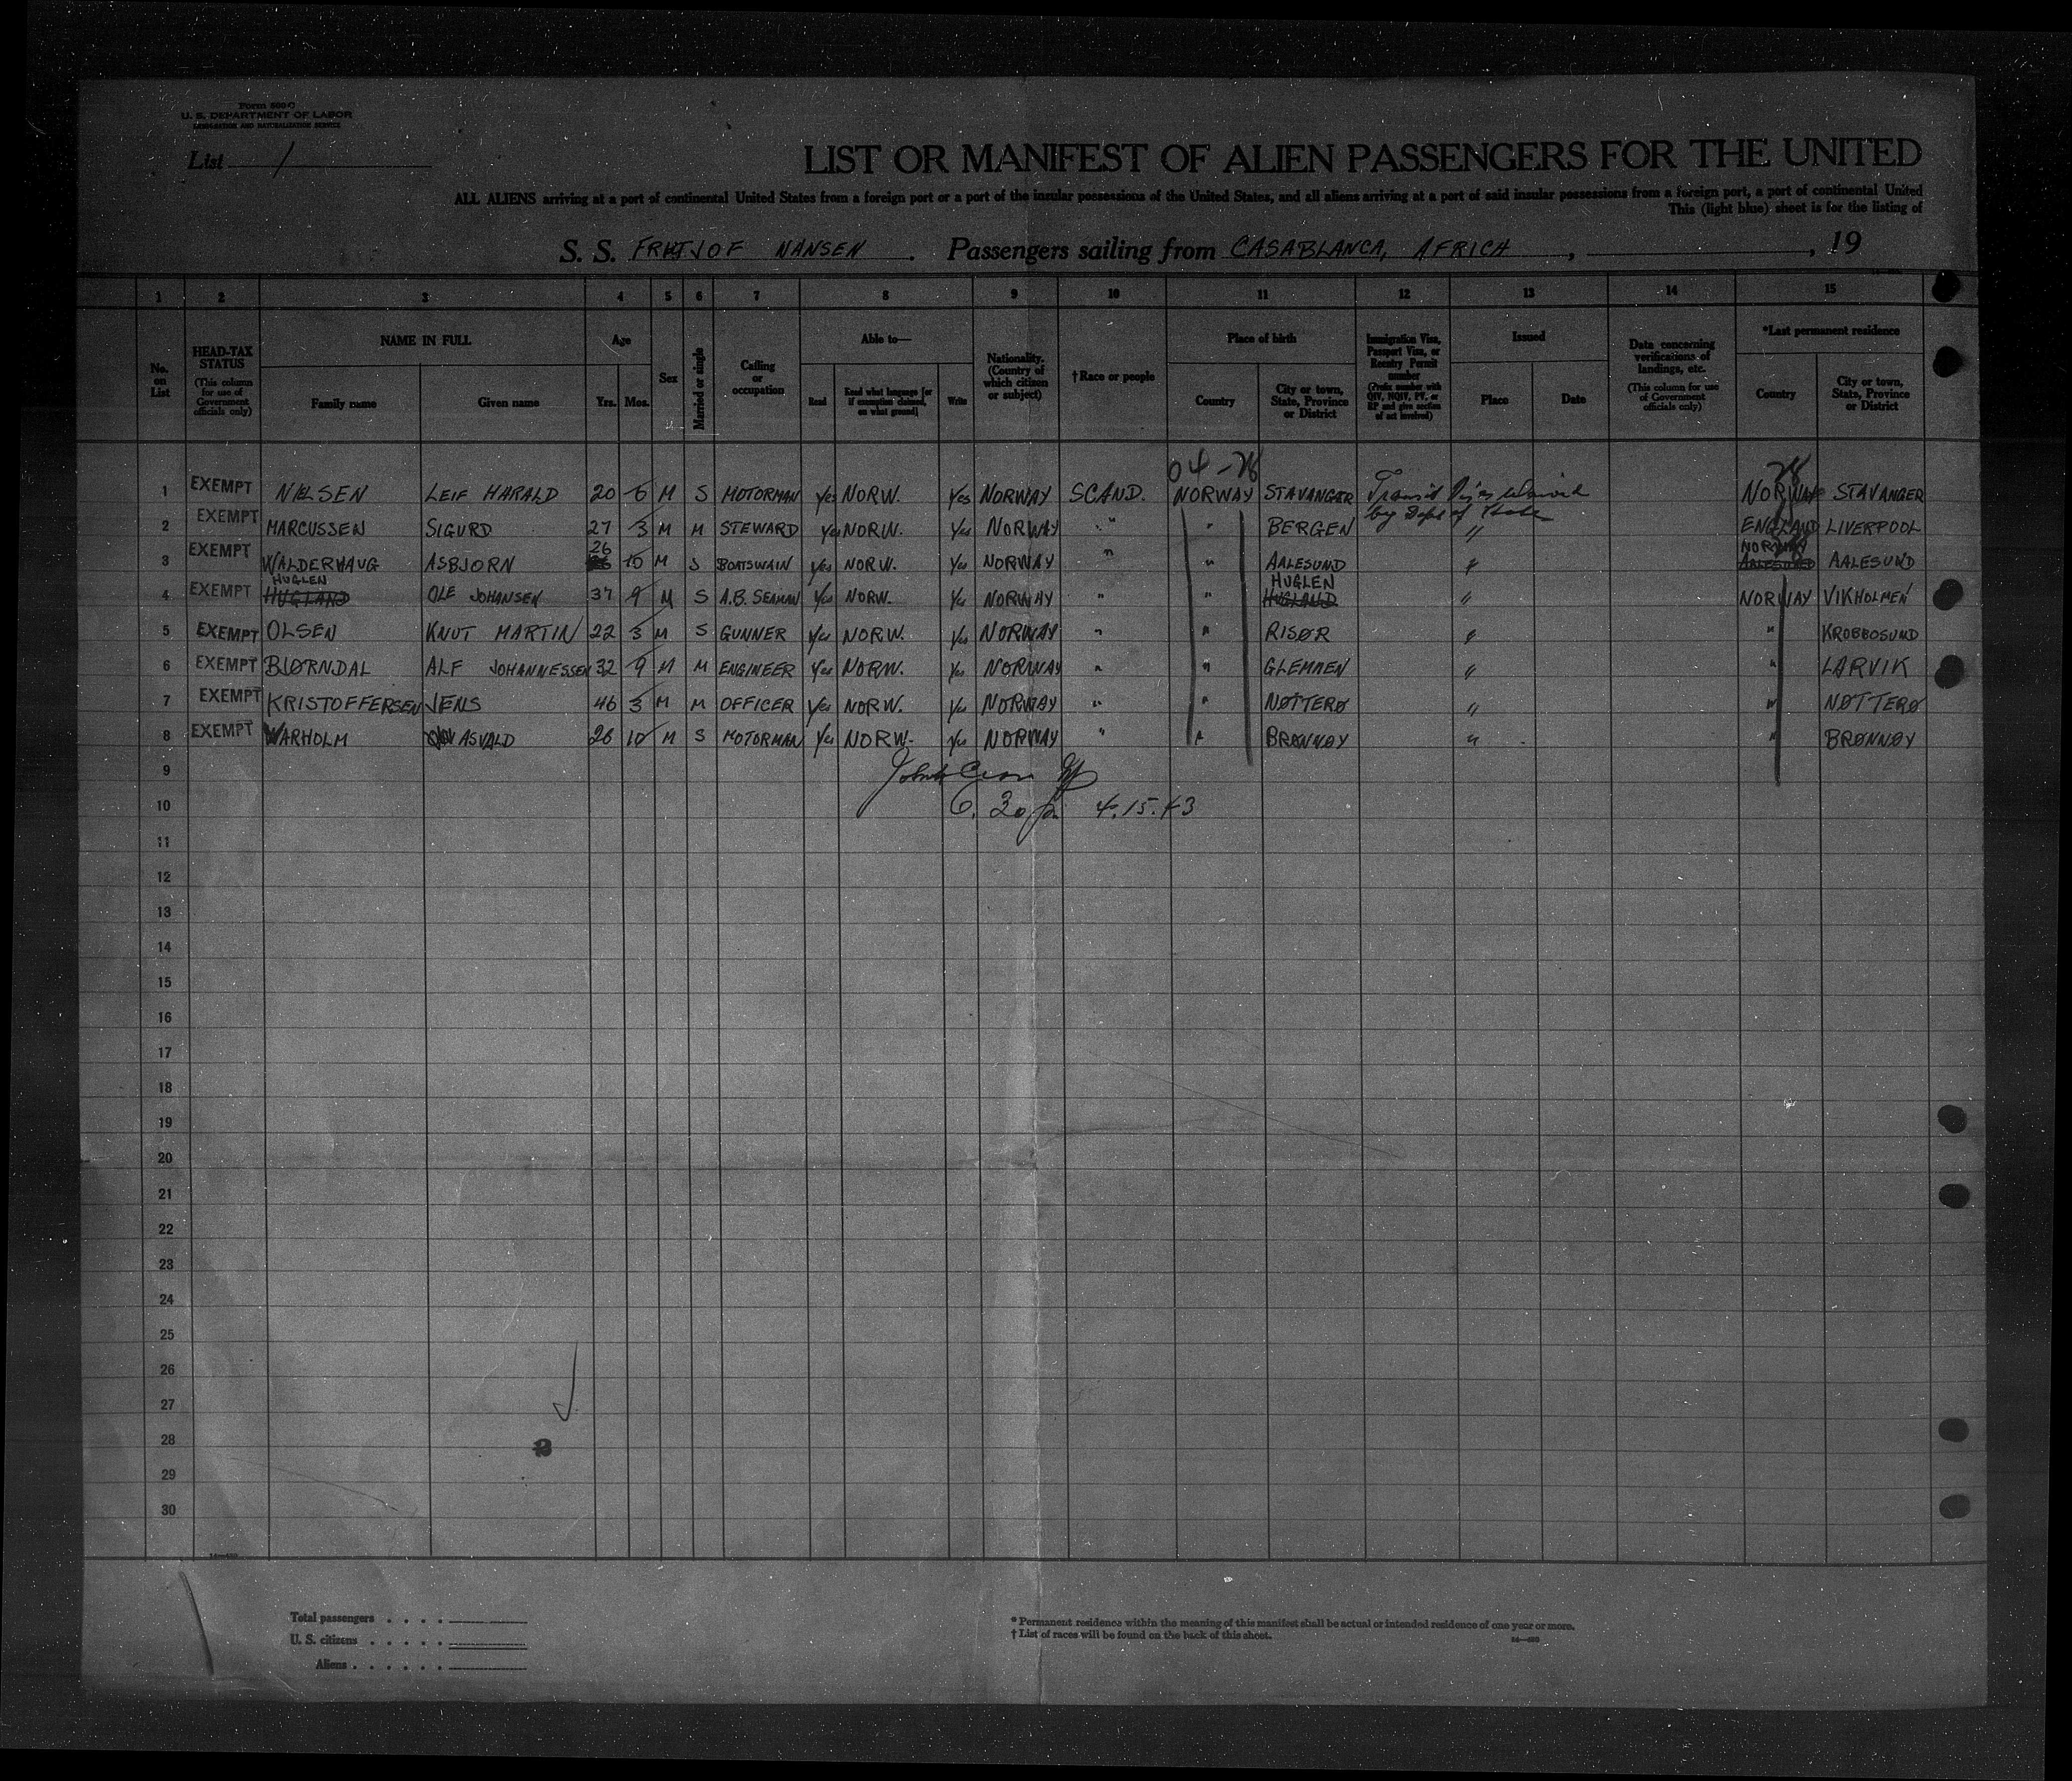 Form 500-C
U. S. DEPARTMENT OF LABOR
IMMIGRATION AND NATURALIZATION SERVICE
List 1
LIST OR MANIFEST OF ALIEN PASSENGERS FOR THE UNITED
ALL ALIENS arriving at a port of continental United States from a foreign port or a port of the insular possessions of the United States, and all aliens arriving at a port of said insular possessions from a foreign port, a port of continental United
This (light blue) sheet is for the listing of
S. S. FRITJOF NANSEN. Passengers sailing from CASABLANCA, AFRICA, , 19
1 2 3 4 5 6 7 8 9 10 11 12 13 14 15
No. on List
HEAD-TAX STATUS (This column for use of Government officials only)
NAME IN FULL Family name Given name
Age Yrs. Mos.
Sex
Married or single
Calling or occupation
Able to— Read Read what language [or if exemption claimed, on what ground] Write
Nationality. (Country of which citizen or subject)
†Race or people
Place of birth Country City or town, State, Province or District
Immigration Visa, Passport Visa, or Reentry Permit number (Prefix number with QIV, NQIV, PV, or RP and give section of act involved)
Issued Place Date
Data concerning verifications of landings, etc. (This column for use of Government officials only)
*Last permanent residence Country City or town, State, Province or District
04-28 28
1 EXEMPT NIELSEN LEIF HARALD 20 6 M S MOTORMAN Yes NORW. Yes NORWAY SCAND. NORWAY STAVANGER Transit Visas Waived NORWAY STAVANGER
by Dept of State
2 EXEMPT MARCUSSEN SIGURD 27 3 M M STEWARD Yes NORW. Yes NORWAY " " BERGEN " ENGLAND LIVERPOOL
26 NORWAY
3 EXEMPT WALDERHAUG ASBJORN 10 M S BOATSWAIN Yes NORW. Yes NORWAY " " AALESUND " AALESUND AALESUND
HUGLEN HUGLEN
4 EXEMPT HUGLAND OLE JOHANSEN 37 9 M S A.B. SEAMAN Yes NORW. Yes NORWAY " " HUGLAND " NORWAY VIKHOLMEN
5 EXEMPT OLSEN KNUT MARTIN 22 3 M S GUNNER Yes NORW. Yes NORWAY " " RISØR " " KROBBOSUND
6 EXEMPT BJØRNDAL ALF JOHANNESSEN 32 9 M M ENGINEER Yes NORW. Yes NORWAY " " GLEMMEN " " LARVIK
7 EXEMPT KRISTOFFERSEN JENS 46 3 M M OFFICER Yes NORW. Yes NORWAY " " NØTTERØ " " NØTTERØ
8 EXEMPT WARHOLM ASVALD 26 10 M S MOTORMAN Yes NORW. Yes NORWAY " " BRØNNØY " " BRØNNØY
9
10 6.30 pm 4.15.43
11
12
13
14
15
16
17
18
19
20
21
22
23
24
25
26
27
28
29
30
Total passengers
U. S. citizens
Aliens
* Permanent residence within the meaning of this manifest shall be actual or intended residence of one year or more.
† List of races will be found on the back of this sheet.